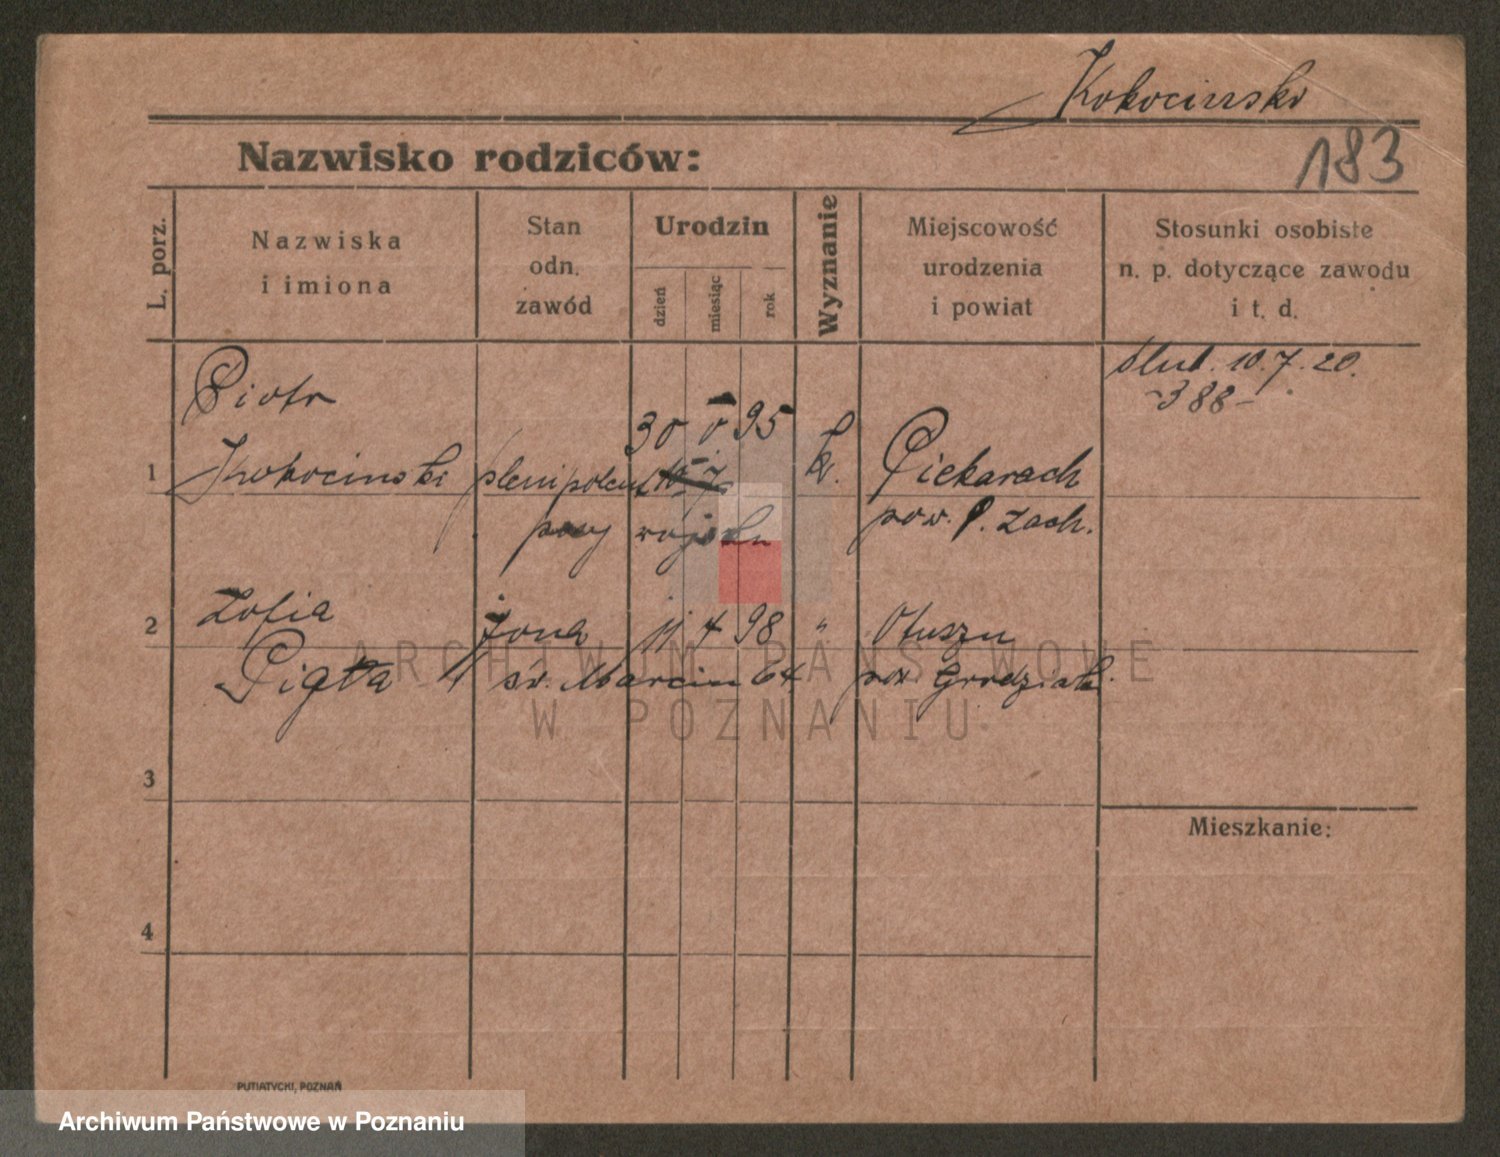 Kokocinski
183
Nazwisko rodziców:
L. porz.
Nazwiska
i imiona
Stan
odn.
zawód
Urodzin
dzień
miesiąc
rok
Wyznanie
Miejscowość
urodzenia
i powiat
Stosunki osobiste
n. p. dotyczące zawodu
i t. d.
ślub. 10.7.20.
-388-
Piotr
30 95
1 Kokocinski plenipotent k. Piekarach
pow. P. Zach.
Zofia
2 żona 11 4 98 " Otuszu
Piąta św. Marcin 64 pow. Grodzisk.
3
4
Mieszkanie:
PUTIATYCKI, POZNAŃ
ARCHIWUM PAŃSTWOWE
W POZNANIU
Archiwum Państwowe w Poznaniu